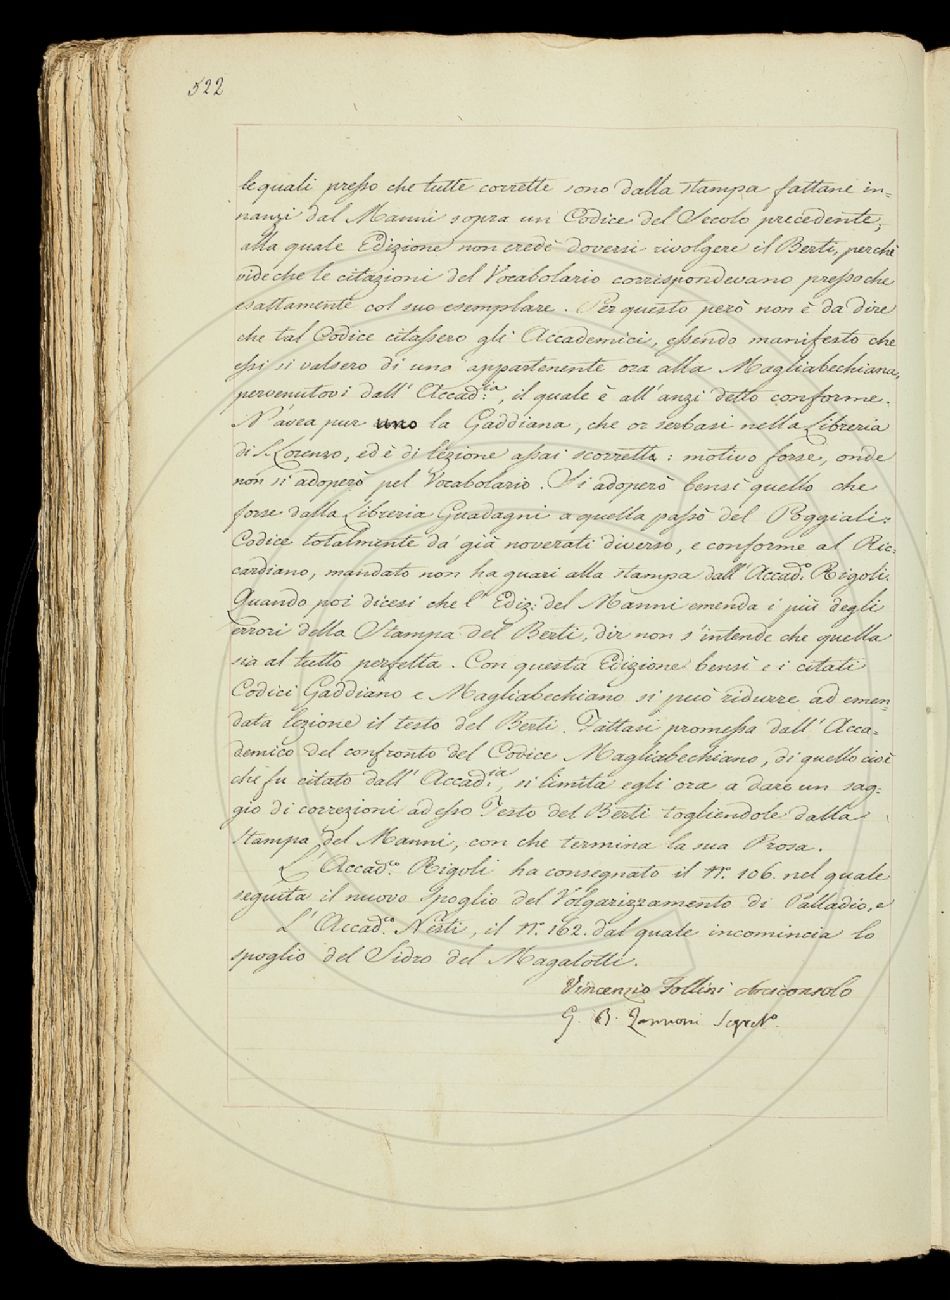 522
le quali presso che tutte corrette sono dalla stampa fattane in=
nanzi dal Manni sopra un Codice del Secolo precedente;
alla quale Edizione non credè doversi rivolgere il Berti, perchè
vide che le citazioni del Vocabolario corrispondevano presso che
esattamente col suo esemplare. Per questo però non è da dire
che tal Codice citassero gli Accademici, essendo manifesto che
essi si valsero di uno appartenente ora alla Magliabechiana,
pervenutovi dall' Accad.ia, il quale è all' anzi detto conforme.
N'avea pur uno la Gaddiana, che or serbasi nella Libreria
di S. Lorenzo, ed è di lezione assai scorretta: motivo forse, onde
non si adoperò pel Vocabolario. Si adoperò bensì quello che
forse dalla Libreria Guadagni a quella passò del Poggiali:
Codice totalmente da' già noverati diverso, e conforme al Ric=
cardiano, mandato non ha guari alla stampa dall' Accad.o Rigoli.
Quando poi dicesi che l' Ediz: del Manni emenda i più degli
errori della Stampa del Berti, dir non s'intende che quella
sia al tutto perfetta. Con questa Edizione bensì e i citati
Codici Gaddiano e Magliabechiano si può ridurre ad emen=
data lezione il testo del Berti. Fattasi promessa dall' Acca=
demico del confronto del Codice Magliabechiano, di quello cioè
che fu citato dall' Accad.ia, si limita egli ora a dare un sag=
gio di correzioni ad esso Testo del Berti togliendole dalla
Stampa del Manni, con che termina la sua Prosa.
L' Accad.co Rigoli ha consegnato il N.o 106. nel quale
seguita il nuovo Spoglio del Volgarizzamento di Palladio, e
L' Accad.co Nesti, il N.o 162. dal quale incomincia lo
spoglio del Sidro del Magalotti.
Vincenzio Follini Arciconsolo
G. B. Zannoni Segret.o